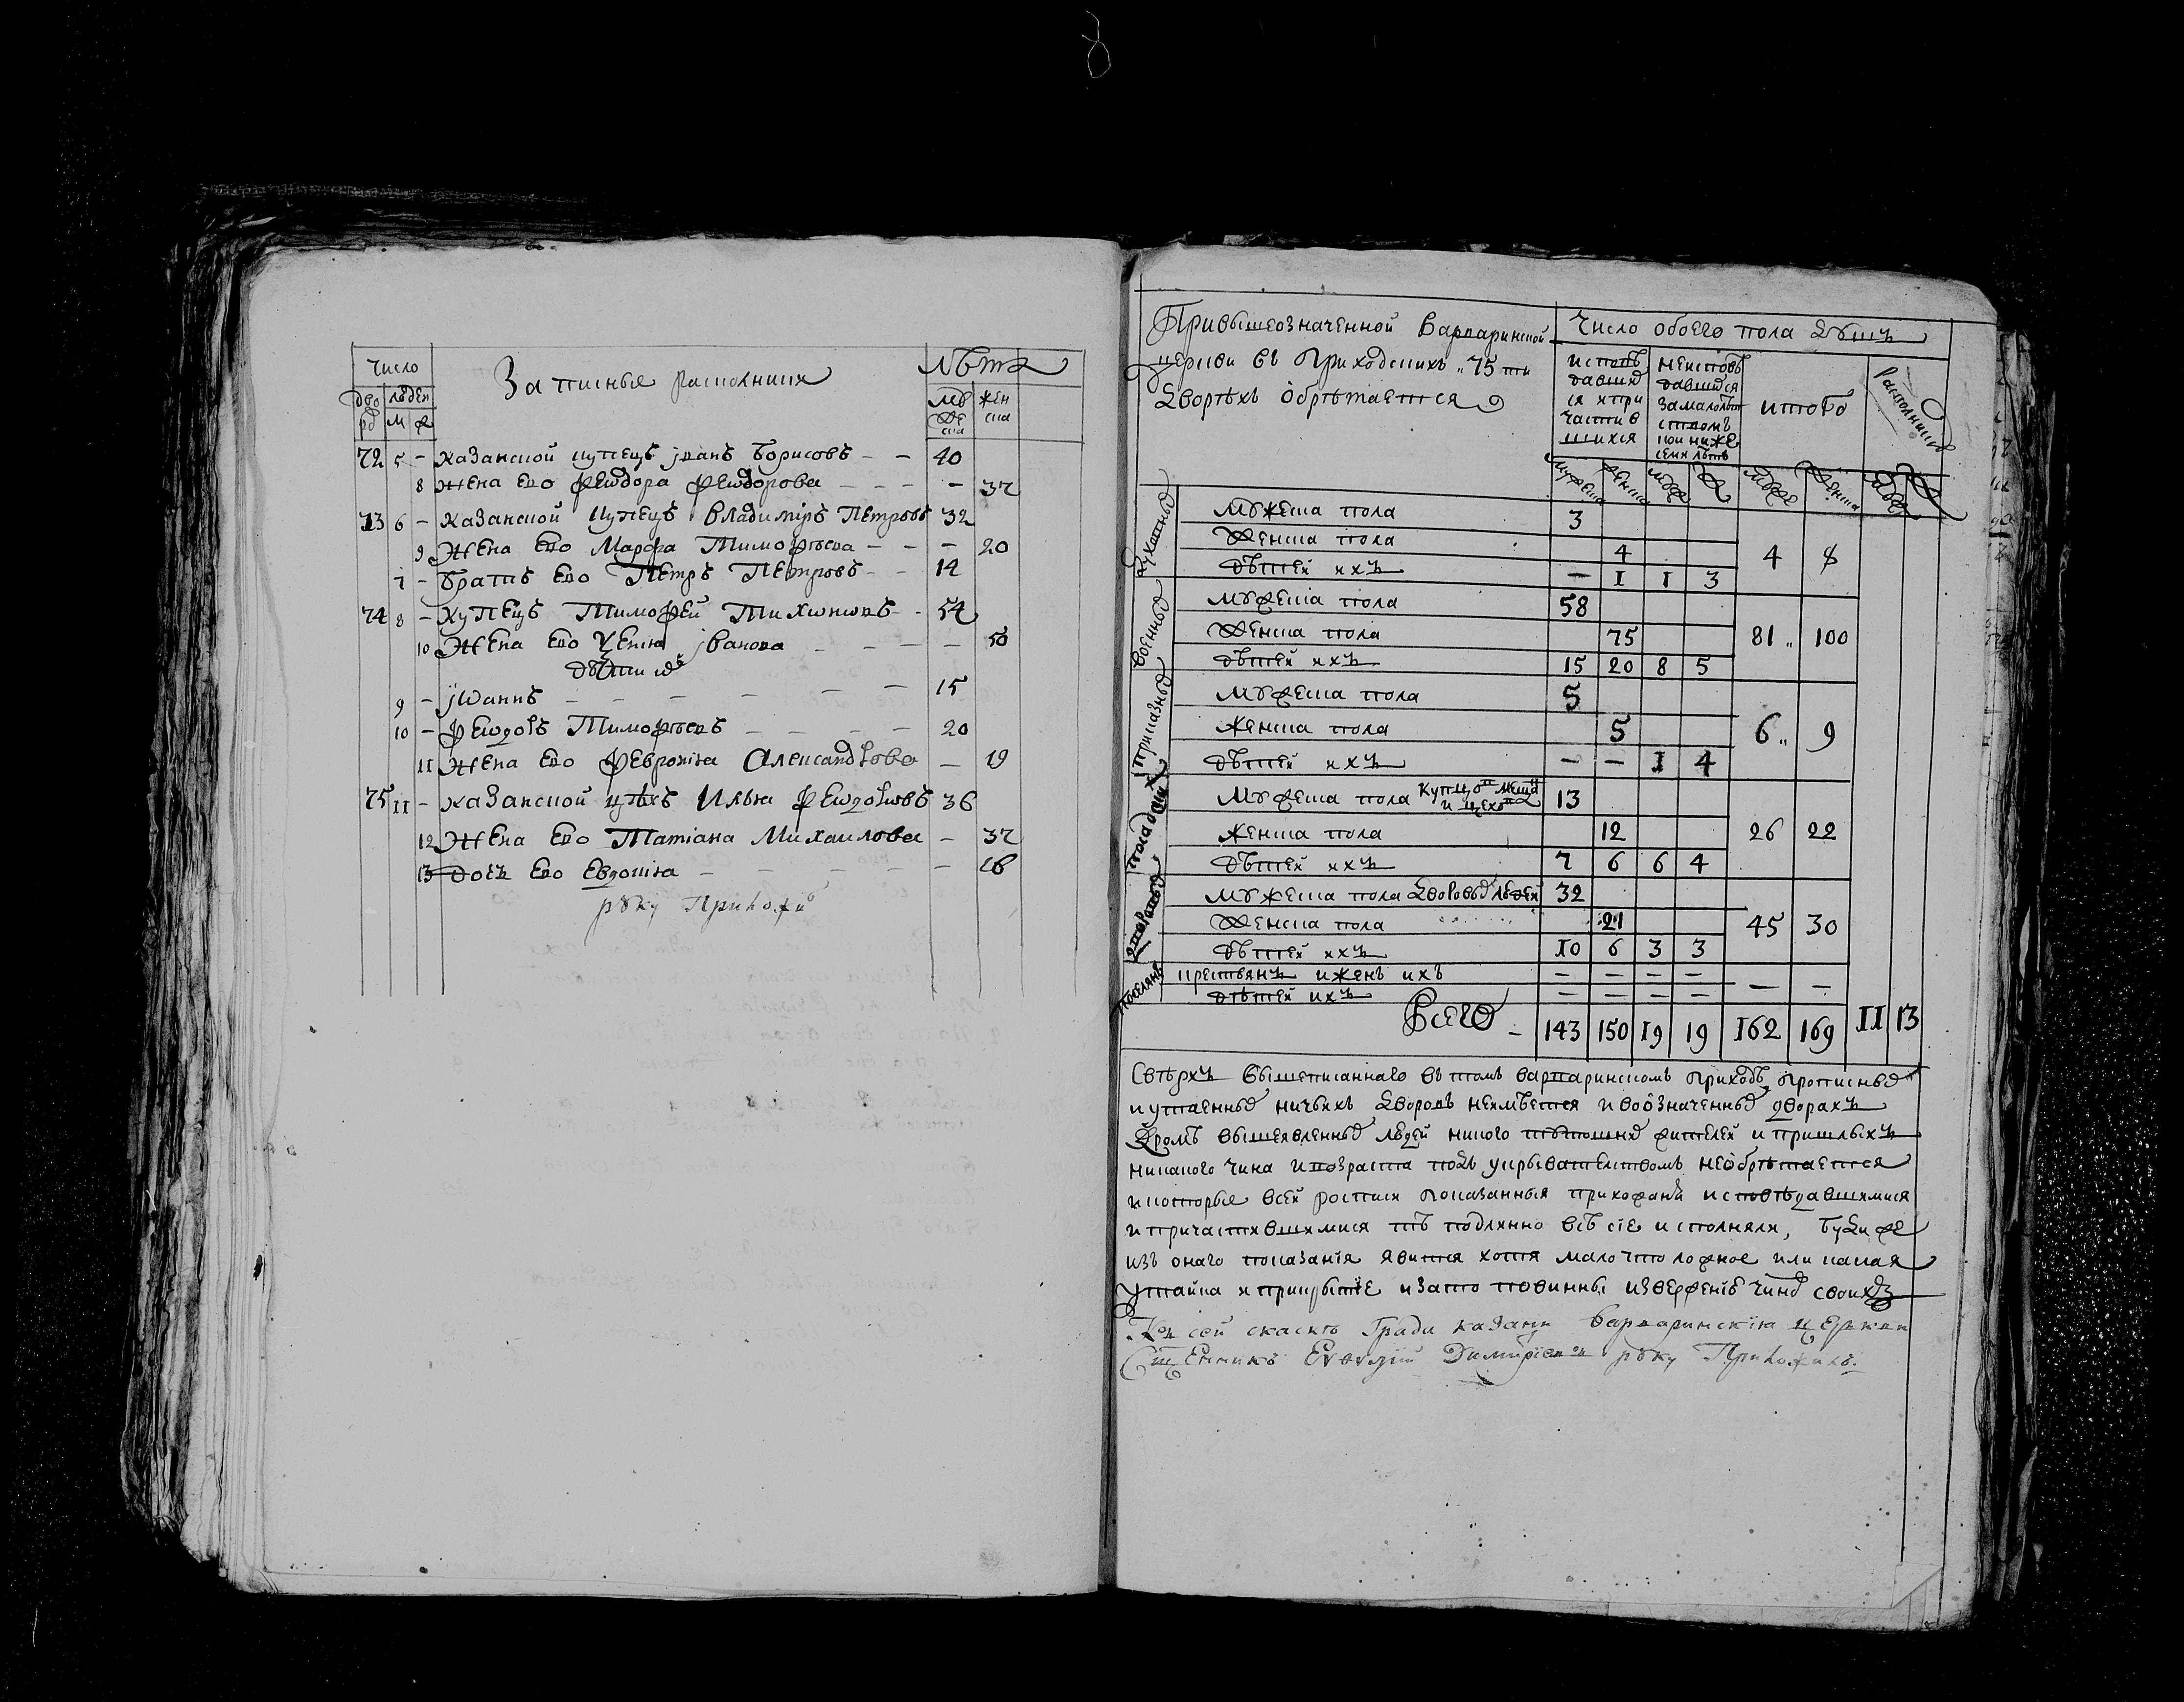 Число
Записные раскольники
Лѣта
дворов людей
м ж
муже ска
жен ска
72 5 - казанской купецъ Іванъ Борисовъ - - 40
8 жена Ево Феѡдора Феѡдорова - - - - 37
73 6 - казанской купецъ Владимиръ Петровъ 32
9 Жена Ево Марѳа Тимофѣева - - - 20
7 - братъ Ево Петръ Петровъ - - 14
74 8 - купецъ Тимофей Тихоновъ - 54
10 Жена Ево Іванова - - - - 50
дѣти ихъ
9 - Іѡаннъ - - - - - - 15
10 - Феѡдоръ Тимофѣевъ - - - - 20
11 Жена Ево Февронія Александрова - 19
75 11 - казанской цѣхъ Илья Феѡдоровъ 36
12 Жена Ево Татіана Михаилова - 37
13 дочь Ево Евдокіа - - - - - 16
руку Приложи
Привышеозначенной Варваринской
церкви въ Приходскихъ 75 ти
Дворѣхъ Обрѣтается
Число обоего пола Душъ
исповѣдавшихся и причастившихся
неисповѣдавшихся за малолѣтствомъ кои ниже семи лѣтъ
итого
раскольниковъ
мужеска женска муже же муже женска муже же
Духовныхъ
Мужеска пола 3
Женска пола 4 4 8
дѣтей ихъ - 1 1 3
военныхъ
Мужеска пола 58
Женска пола 75 81 100
дѣтей ихъ 15 20 8 5
приказныхъ
Мужеска пола 5
Женска пола 5 6 9
дѣтей ихъ - - 1 4
посадскихъ
Мужеска пола Купцо Меща и цехо 13
Женска пола 12 26 22
дѣтей ихъ 7 6 6 4
дворовыхъ
Мужеска пола Дворовыхъ людей 32
Женска пола 21 45 30
дѣтей ихъ 10 6 3 3
поселянъ
крестьянъ и женъ ихъ - - - - - -
дѣтей ихъ - - - -
Всего - 143 150 19 19 162 169 11 13
Сверхъ вышеписаннаго въ томъ варваринскомъ приходѣ прописныхъ
и утаенныхъ ничьихъ Дворовъ неимѣется и воозначенныхъ дворахъ
Кромѣ вышеявленныхъ людей никого тутошнихъ жителей и пришлыхъ
никакого чина и возраста подъ укрывателствомъ необрѣтается
и которые всей росписи показанныя прихожаня исповѣдавшимися
и причастившимися тѣ подлинно всѣ сіе исполняли, буди же
изъ онаго показанія явится хотя мало что ложное или какая
утайка и прикрытіе и зато повинны изверженіе чиновъ своихъ
Къ сей скаскѣ Града казани Варваринскія церкви
Сщенникъ Димитріевъ руку Приложилъ.